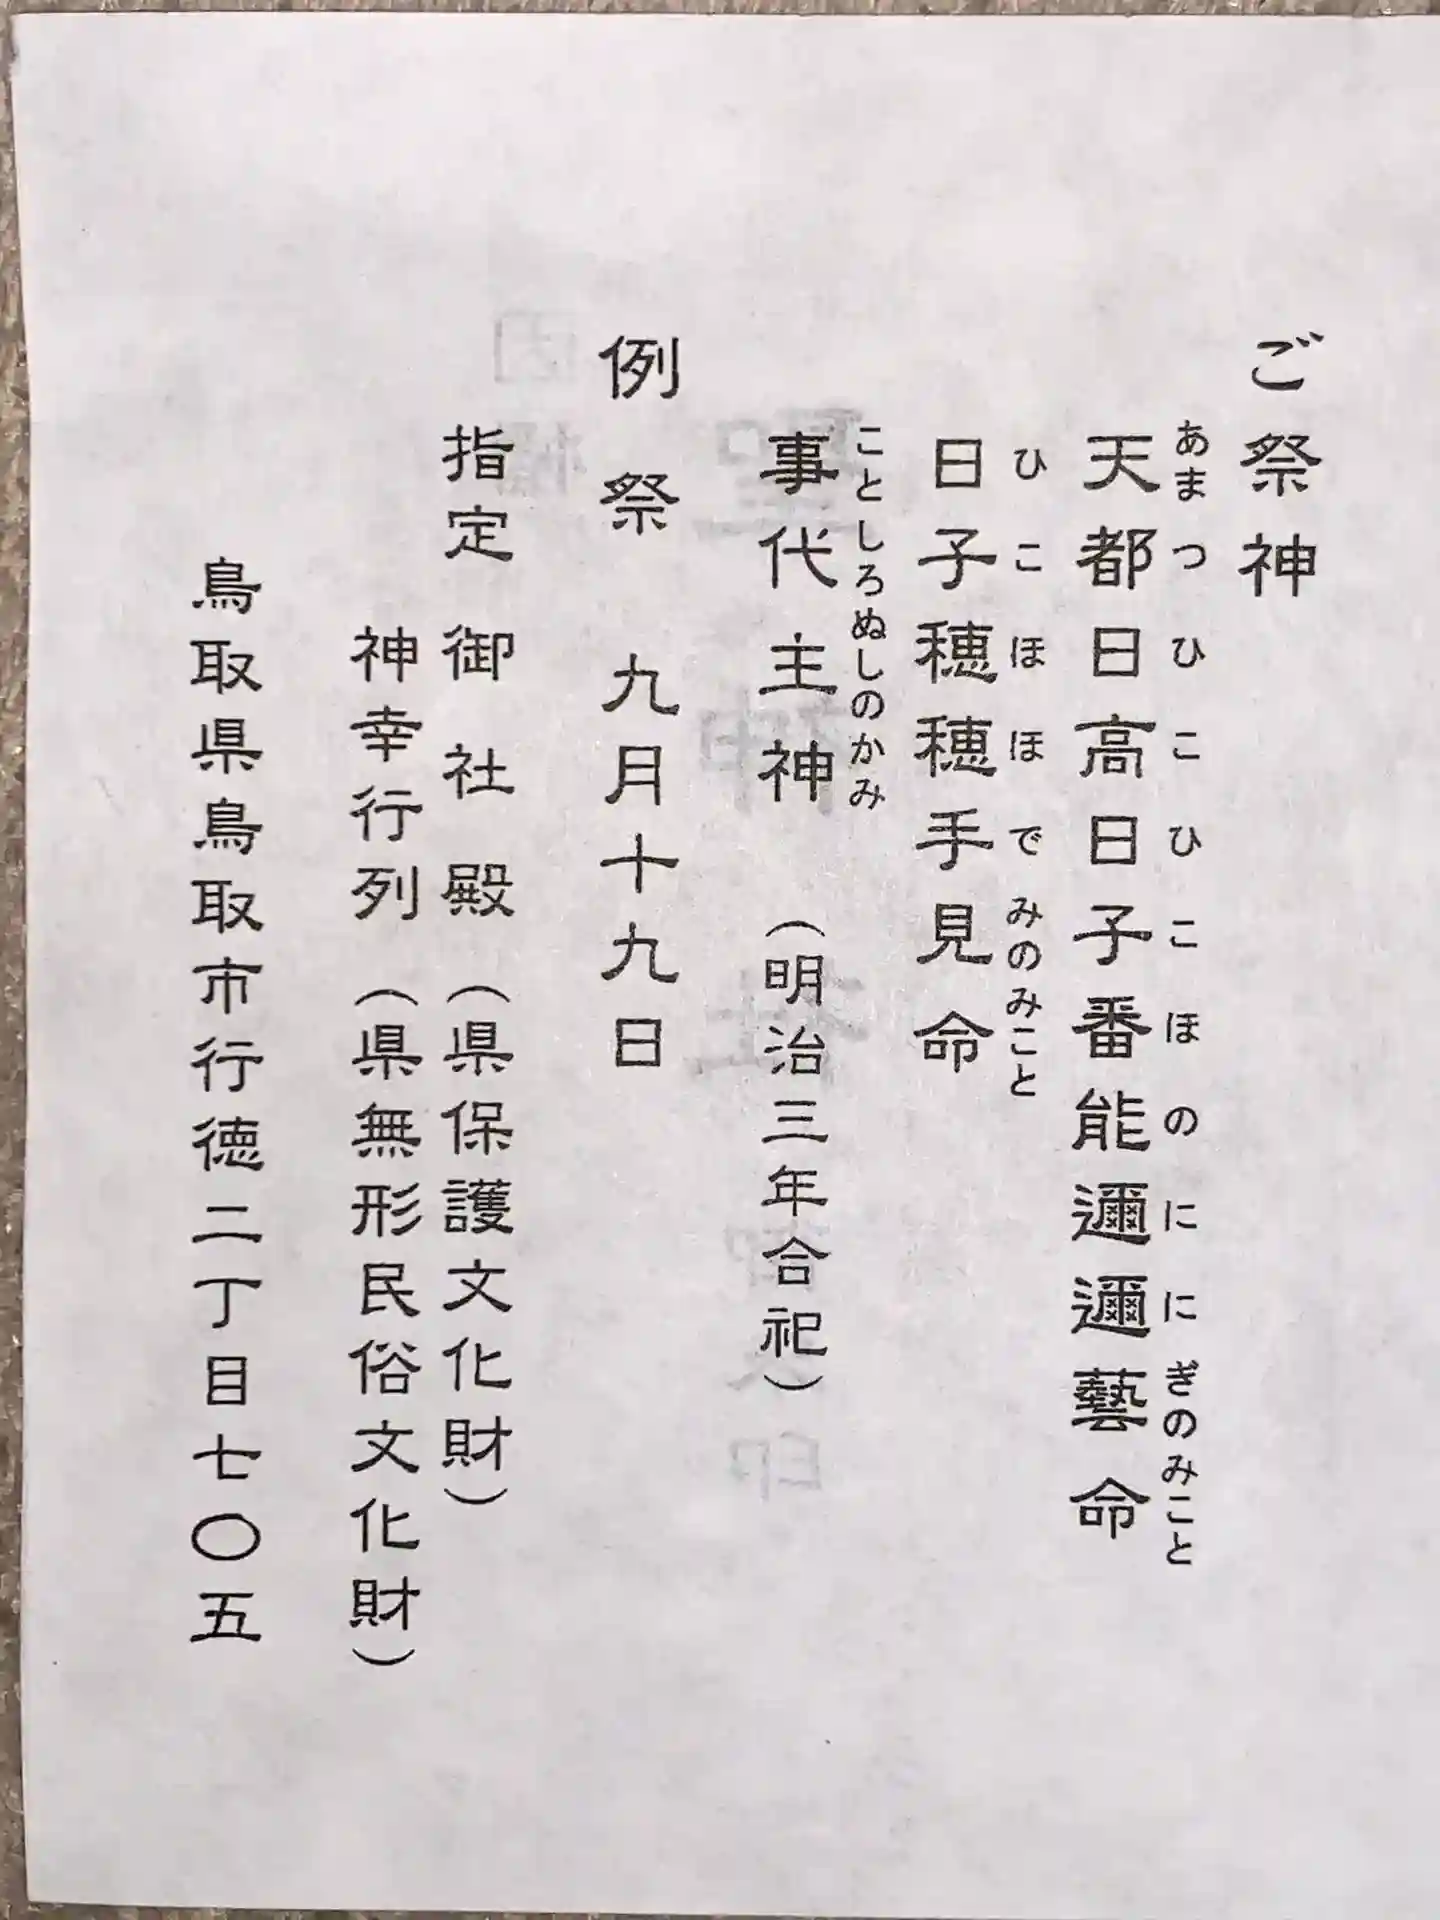 ご祭神
天都日高日子番能邇邇藝命
あまつひこひこほのににぎのみこと
日子穂穂手見命
ひこほほでみのみこと
事代主神 （明治三年合祀）
ことしろぬしのかみ
例祭 九月十九日
指定 御社殿（県保護文化財）
神幸行列（県無形民俗文化財）
鳥取県鳥取市行徳二丁目七〇五